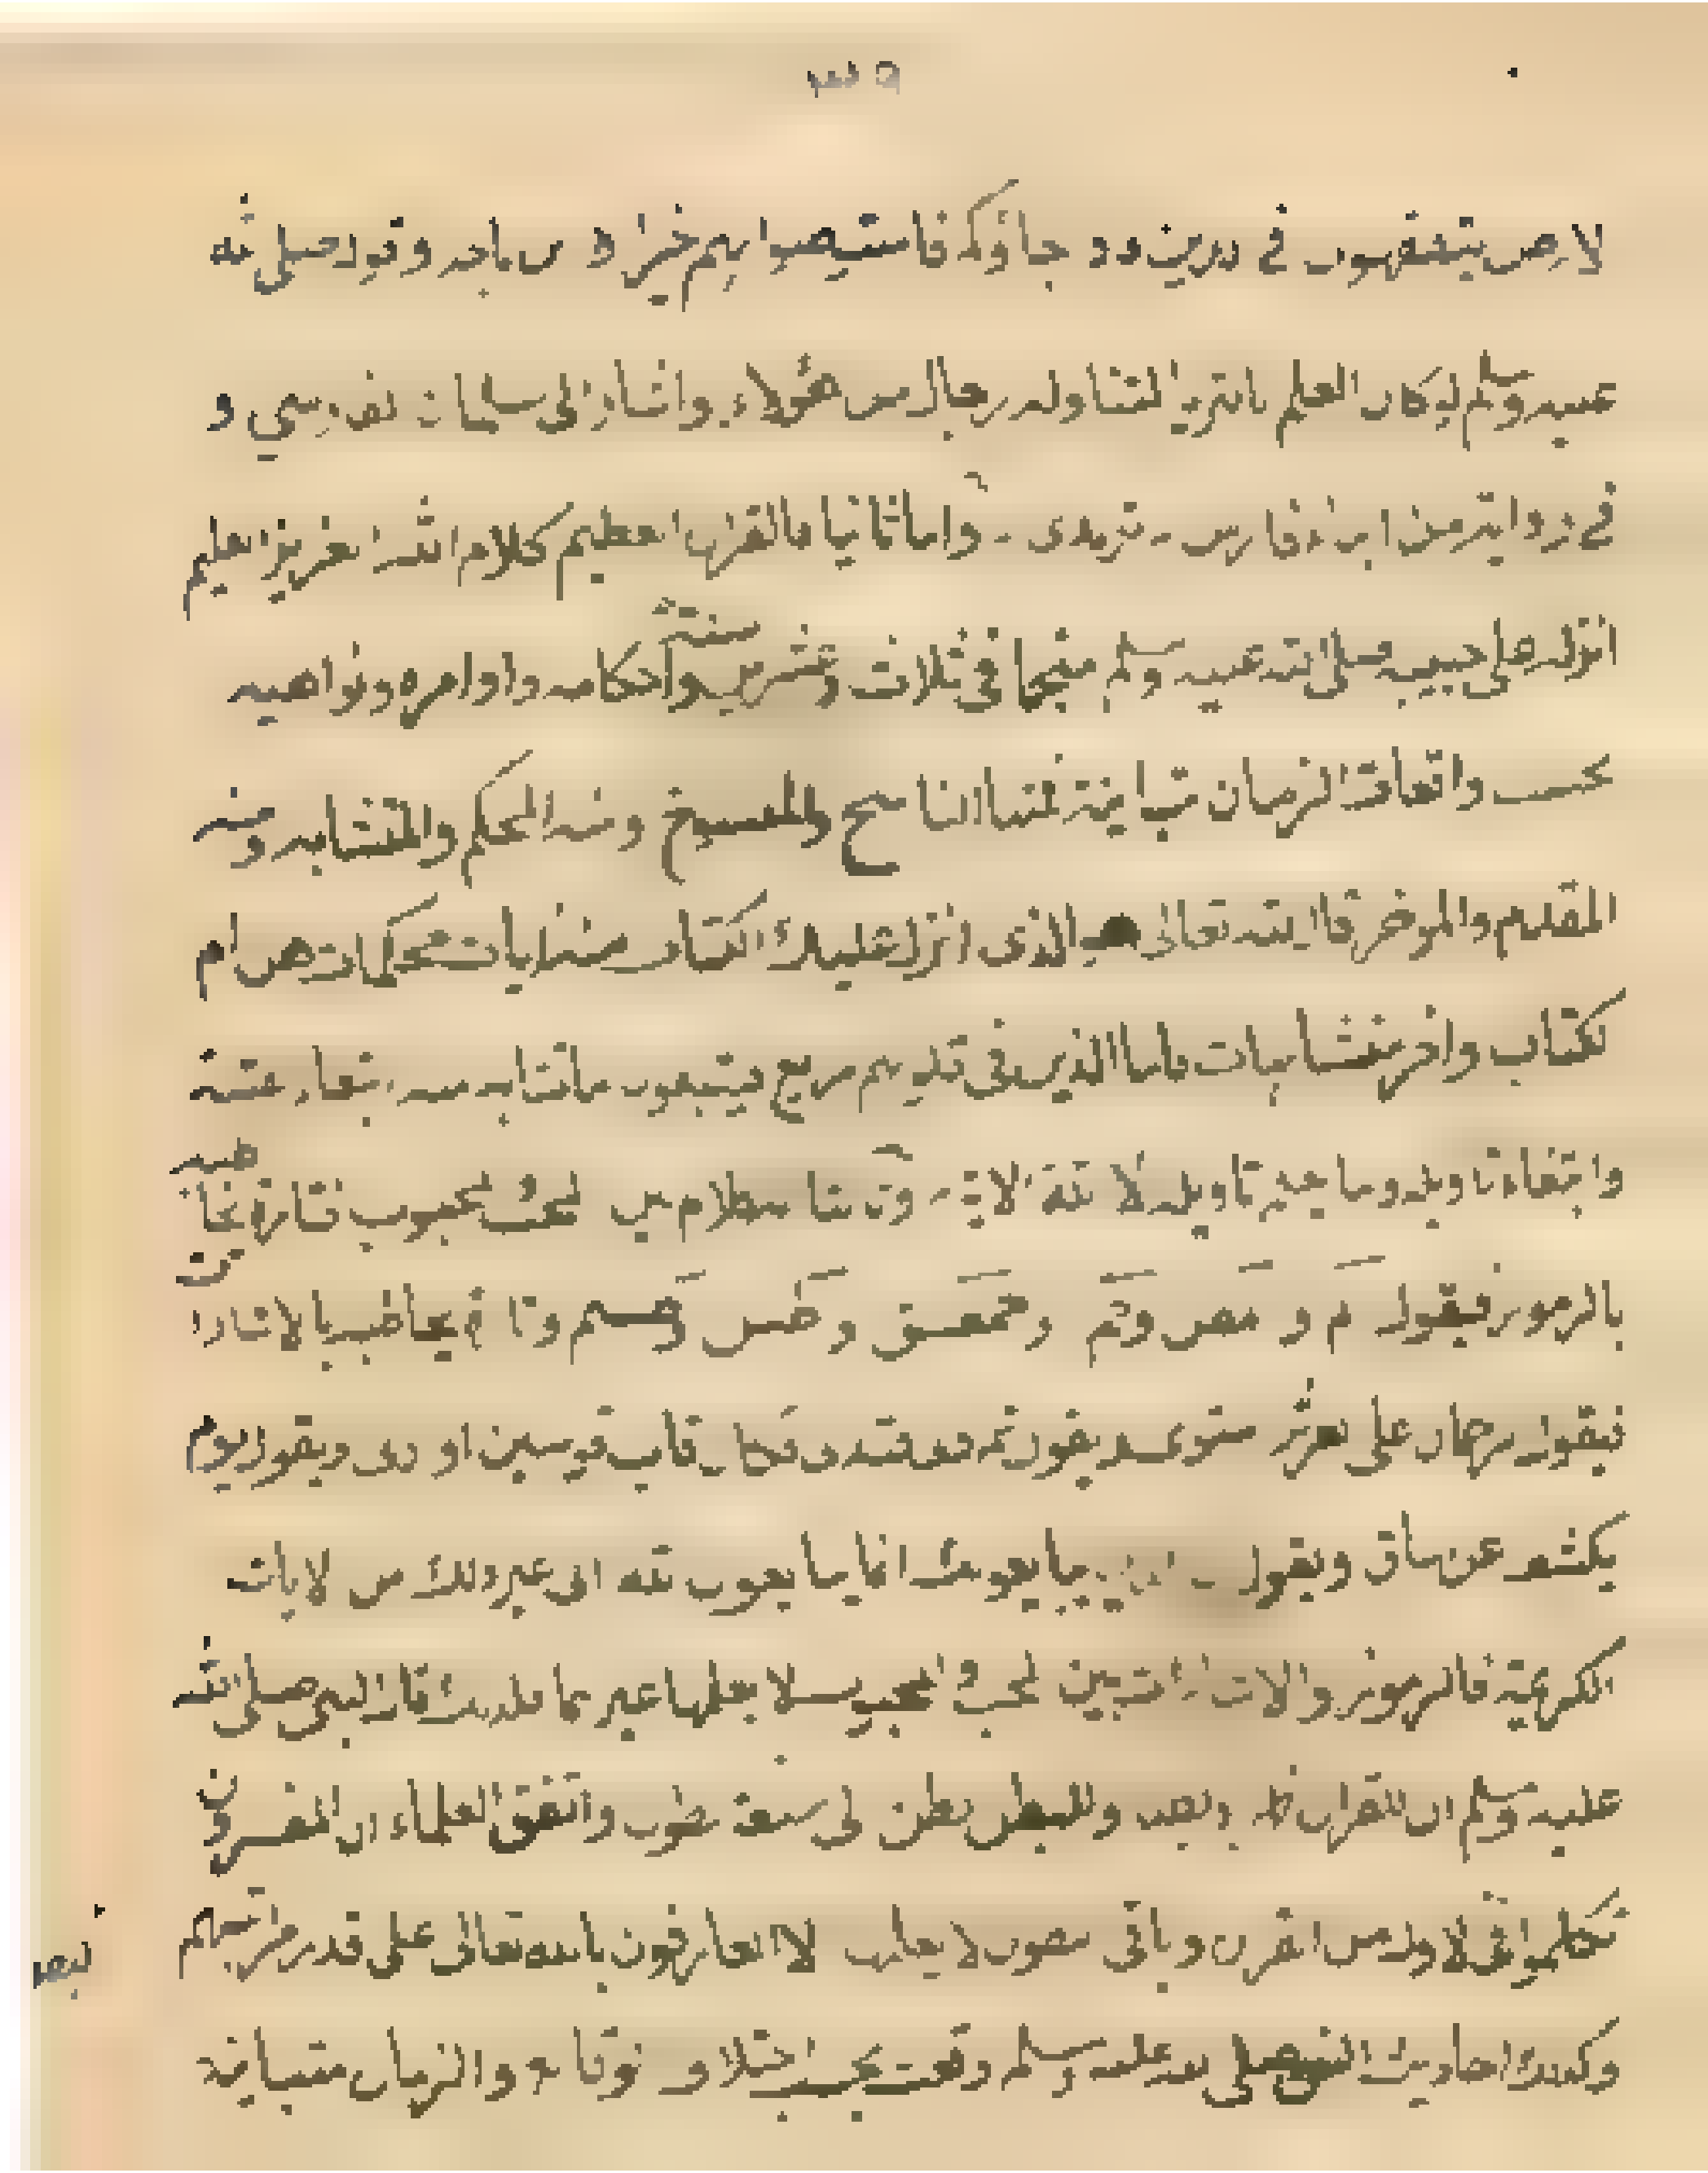 ٣٩
في الدين فاذا جاؤكم فاستوصوا بهم خيرا ابن ماجه وقوله صلى الله
عليه وسلم لو كان العلم بالثريا لتناوله رجال من هؤلاء واشار الى سلمان الفارسي و
في رواية من ابناء فارس ترمذى واما ثانيا فالقران العظيم كلام الله العزيز العليم
انزله على حبيبه صلى الله عليه وسلم منجما في ثلاث وعشرين سنة واحكامه واوامره ونواهيه
بحسب واقعات الزمان متباينة فمنها الناسخ والمنسوخ ومنه المحكم والمتشابه ومنه
المقدم والموخر قال الله تعالى هو الذى انزل عليك الكتاب منه ايات محكمات هن ام
الكتاب واخر متشابهات فاما الذين في قلوبهم زيغ فيتبعون ما تشابه منه ابتغاء الفتنة
وابتغاء تاويله وما يعلم تاويله الا الله الاية الكلام بين المحب والمحبوب فتارة يخاطبه
بالرموز فيقول الم و المص وحم و حمعسق و طس و طسم وتارة يخاطبه بالاشارات
فيقول الرحمان على العرش استوى ويقول ثم دنى فتدلى فكان قاب قوسين او ادنى ويقول يوم
يكشف عن ساق ويقول ان الذين يبايعونك انما يبايعون الله الى غير ذلك من الايات
الكريمة فالرموز والاشارات بين المحب والمحبوب لا يعلمها غيرهما فلذلك قال النبي صلى الله
عليه وسلم ان للقران ظهرا وبطنا وللبطن بطن الى سبعة بطون واتفق العلماء ان المفسرون
تكلموا في الاول من القران وباقي بطون لا يعلمها الا العارفون بالله تعالى على قدر مراتبهم
وكذلك احاديث النبي صلى الله عليه وسلم وقعت بحسب اختلاف اوقاته والزمان متباينة